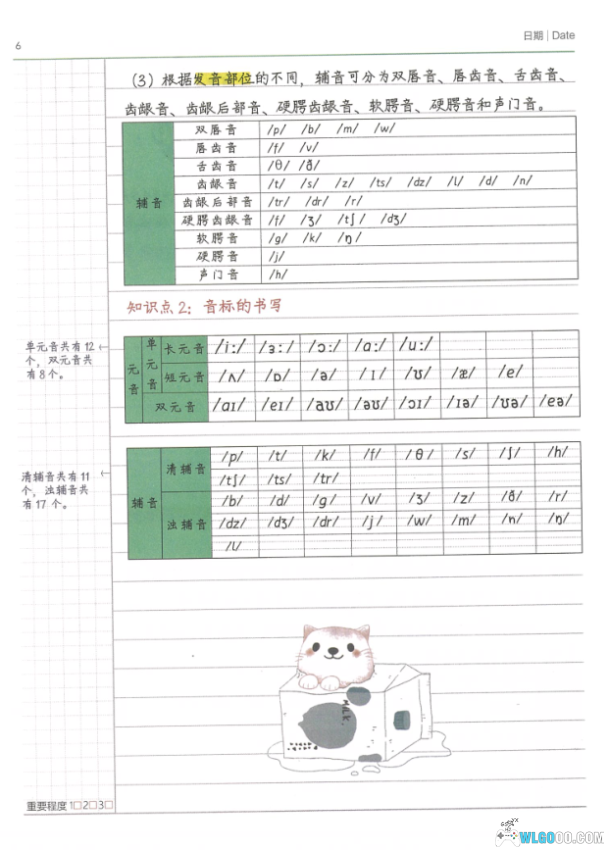 6
日期 | Date
(3) 根据发音部位的不同，辅音可分为双唇音、唇齿音、舌齿音、
齿龈音、齿龈后部音、硬腭齿龈音、软腭音、硬腭音和声门音。
辅音
双唇音 /p/ /b/ /m/ /w/
唇齿音 /f/ /v/
舌齿音 /θ/ /ð/
齿龈音 /t/ /s/ /z/ /ts/ /dz/ /l/ /d/ /n/
齿龈后部音 /tr/ /dr/ /r/
硬腭齿龈音 /ʃ/ /ʒ/ /tʃ/ /dʒ/
软腭音 /g/ /k/ /ŋ/
硬腭音 /j/
声门音 /h/
知识点2：音标的书写
单元音共有12
个，双元音共
有8个。
元音
单元音
长元音 /i:/ /ɜ:/ /ɔ:/ /ɑ:/ /u:/
短元音 /ʌ/ /ɒ/ /ə/ /ɪ/ /ʊ/ /æ/ /e/
双元音 /aɪ/ /eɪ/ /aʊ/ /əʊ/ /ɔɪ/ /ɪə/ /ʊə/ /eə/
清辅音共有11
个，浊辅音共
有17个。
辅音
清辅音 /p/ /t/ /k/ /f/ /θ/ /s/ /ʃ/ /h/
/tʃ/ /ts/ /tr/
浊辅音 /b/ /d/ /g/ /v/ /ʒ/ /z/ /ð/ /r/
/dz/ /dʒ/ /dr/ /j/ /w/ /m/ /n/ /ŋ/
/l/
MILK
重要程度 1□2□3□
WLGOOO.COM